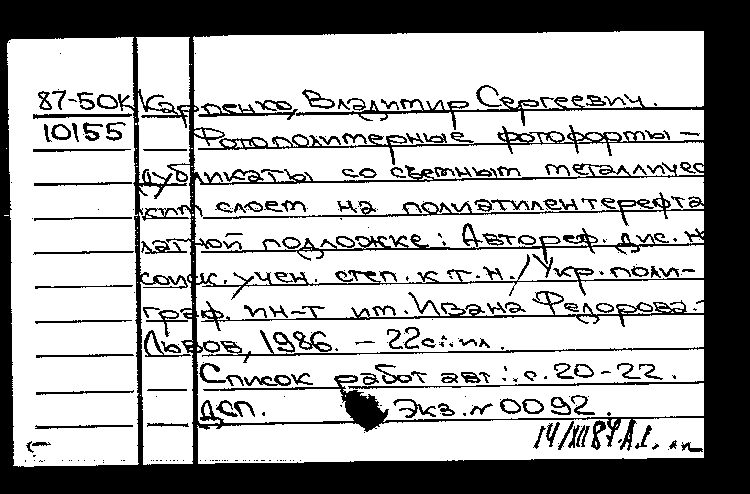 87-50К Карпенко, Владимир Сергеевич.
10155 Фотополимерные фотоформы –
дубликаты со съемным металличес
ким слоем на полиэтилентерефта
латной подложке: Автореф. дис. н
соиск. учен. степ. к.т.н. / Укр. поли-
граф. ин-т им. Ивана Федорова. -
Львов, 1986. – 22с.: ил.
Список работ авт.: с. 20-22.
ДСП. Экз. № 0092.